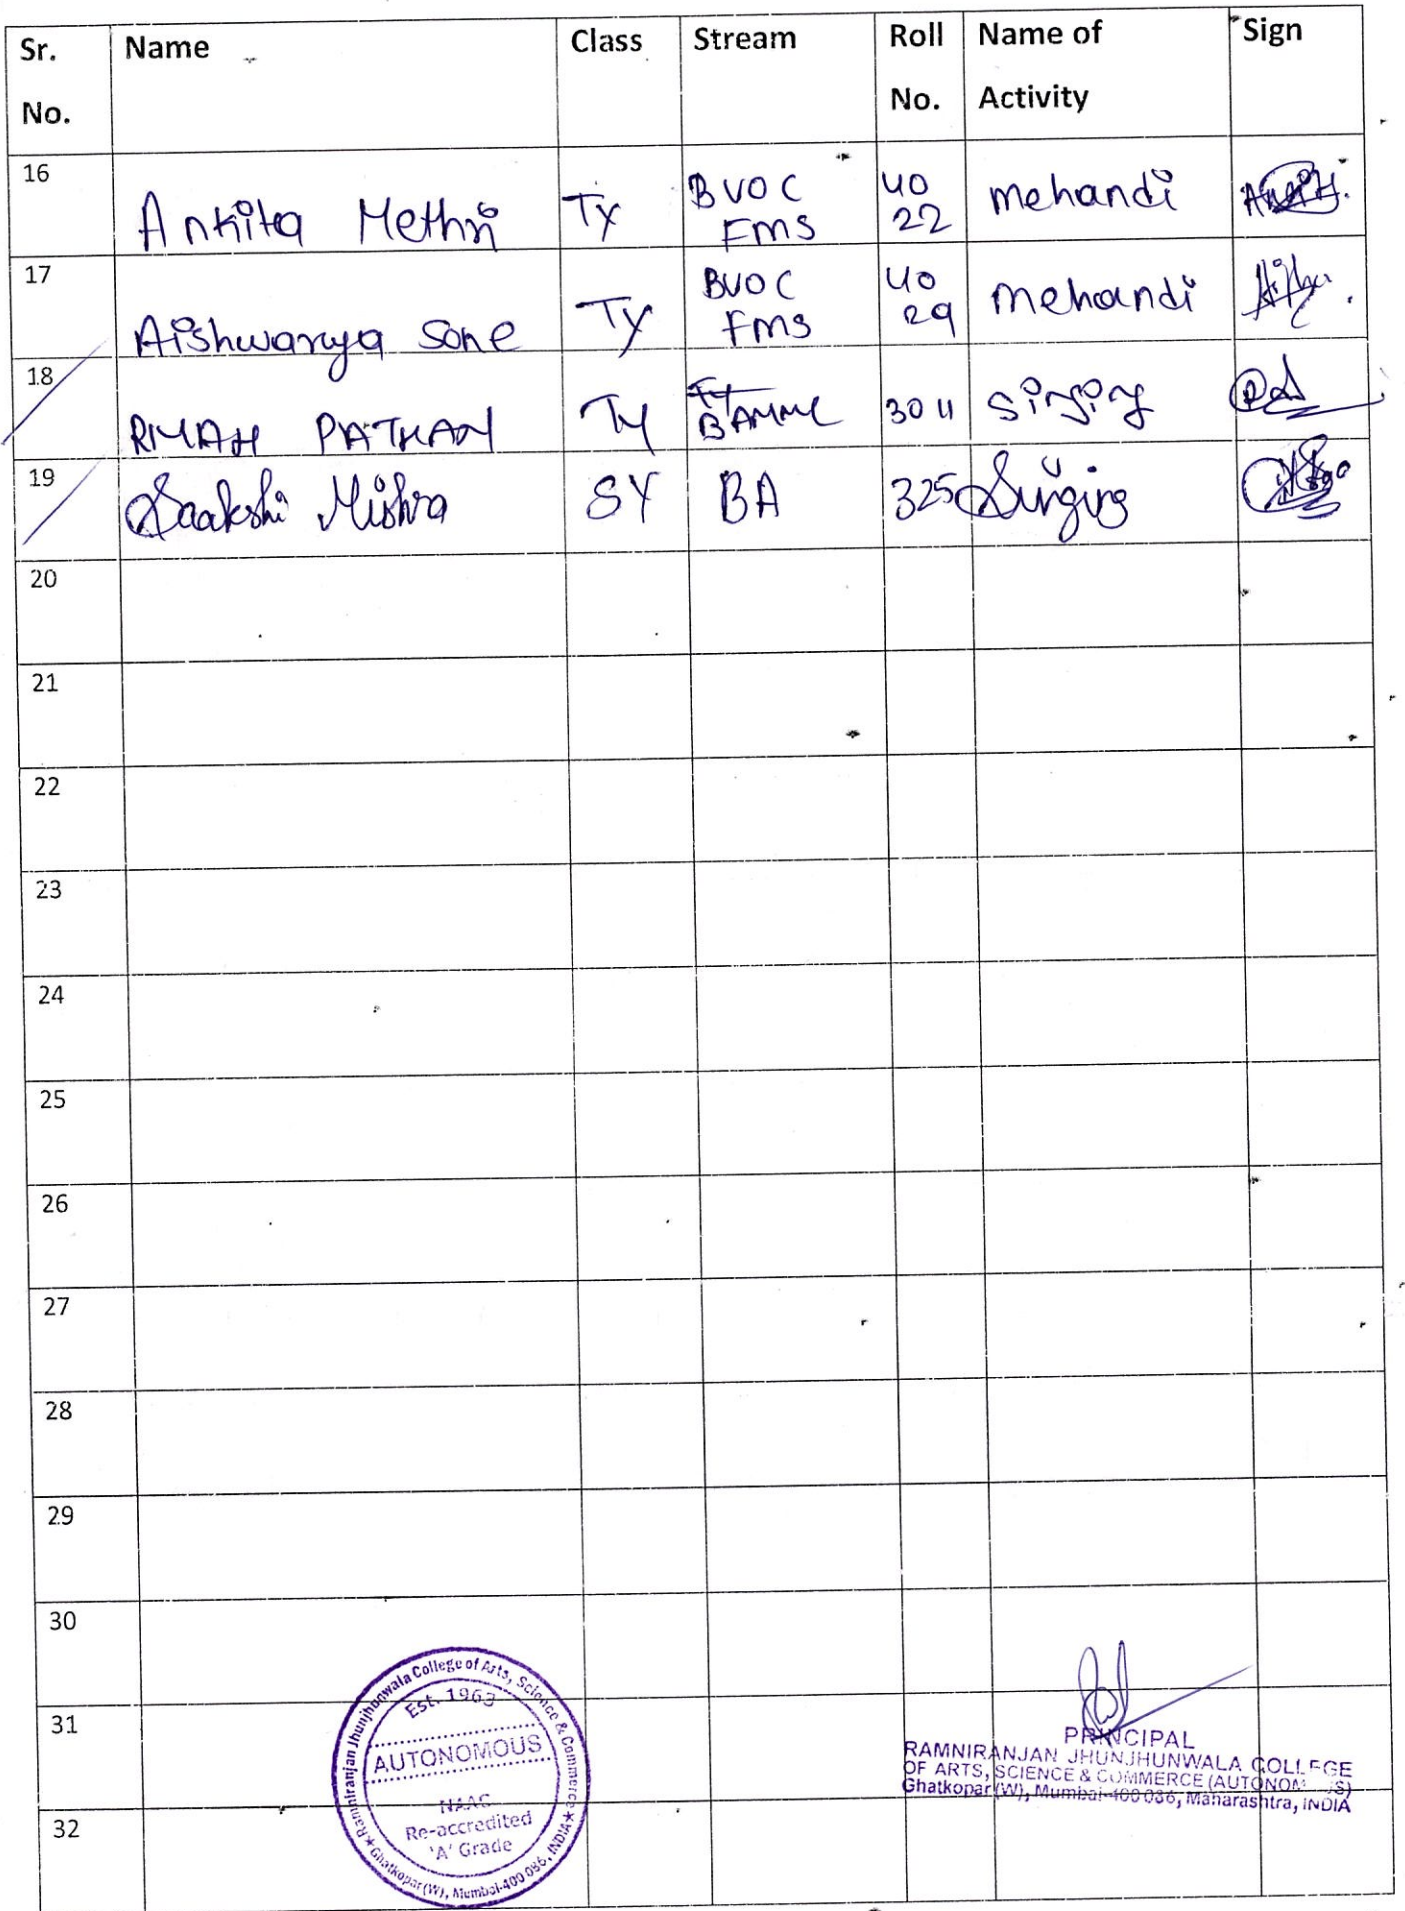 Sr. No. Name Class Stream Roll No. Name of Activity Sign
16 Ankita Methri Ty BVOC FMS 4022 mehandi
17 Aishwarya Sone Ty BVOC FMS 4029 mehandi
18 PATHAN Ty BAMMC 3011 singing
19 Saakshi Mishra SY BA 325 Singing
20
21
22
23
24
25
26
27
28
29
30
31
32
Ramniranjan Jhunjhunwala College of Arts, Science & Commerce
Est. 1963
AUTONOMOUS
NAAC
Re-accredited
'A' Grade
Ghatkopar (W), Mumbai-400 086, INDIA
PRINCIPAL
RAMNIRANJAN JHUNJHUNWALA COLLEGE
OF ARTS, SCIENCE & COMMERCE (AUTONOMOUS)
Ghatkopar (W), Mumbai-400 086, Maharashtra, INDIA